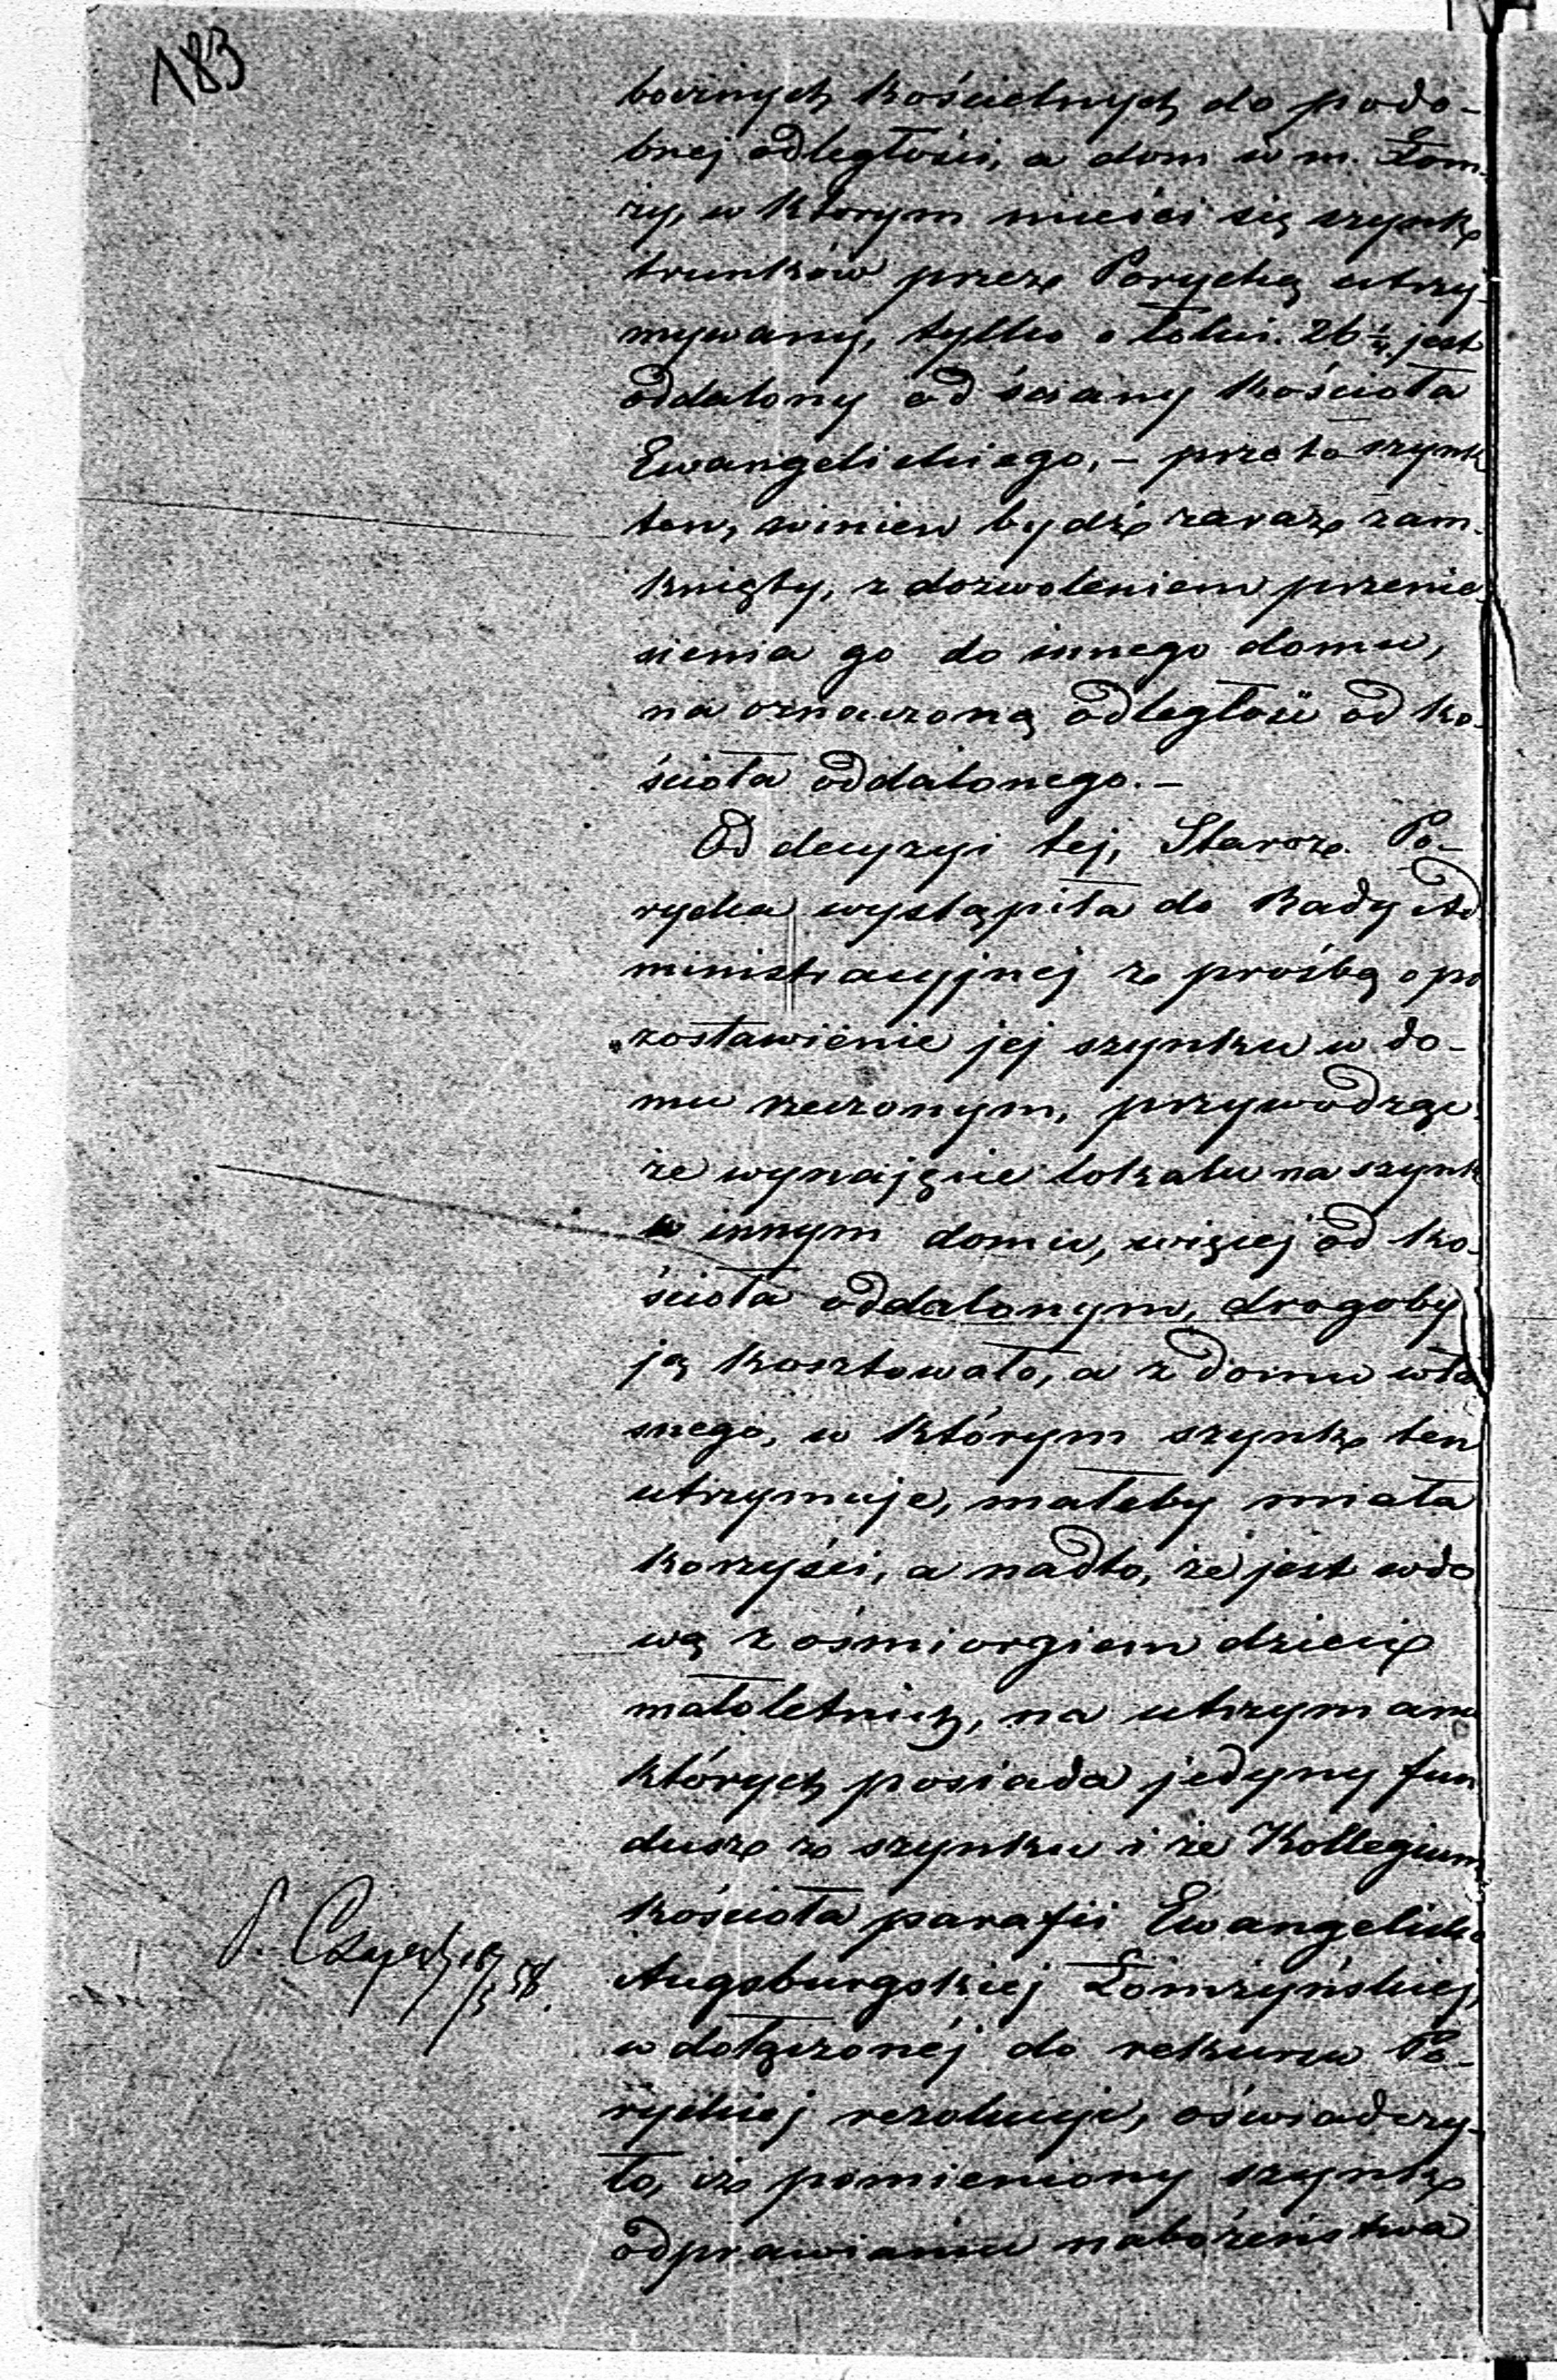 183
bocznych kościelnych do podo-
bnej odległości, a dom w m. Łom-
ży, w którym mieści się szynk
trunków przez Porychą utrzy-
mywany, tylko o łokci 26 1/4 jest
oddalony od ściany kościoła
Ewangelickiego, – przeto szynk
ten, winien bydź zaraz zam-
knięty, z dozwoleniem przenie-
sienia go do innego domu,
na oznaczoną odległość od ko-
ścioła oddalonego. –
Od decyzyi tej, Staroz. Po-
rycka wystąpiła do Rady Ad
ministracyjnej z prośbą o po
zostawienie jej szynku w do-
mu rzeczonym, przywodząc
że wynajęcie lokalu na szynk
w innym domu, więcej od ko-
ścioła oddalonym, drogoby
ją kosztowało, a z domu wła
snego, w którym szynk ten
utrzymuje, małeby miała
korzyści, a nadto, że jest wdo
wą z ośmiorgiem dzieci
małoletnich, na utrzymanie
których posiada jedyny fun
dusz z szynku i że Kollegium
kościoła parafii Ewangelicko
Augsburgskiej Łomżyńskiej,
w dołączonéj do rekursu Po-
ryckiej rezolucyi, oświadczy-
ło, iż pomieniony szynk
odprawianiu nabożeństwa